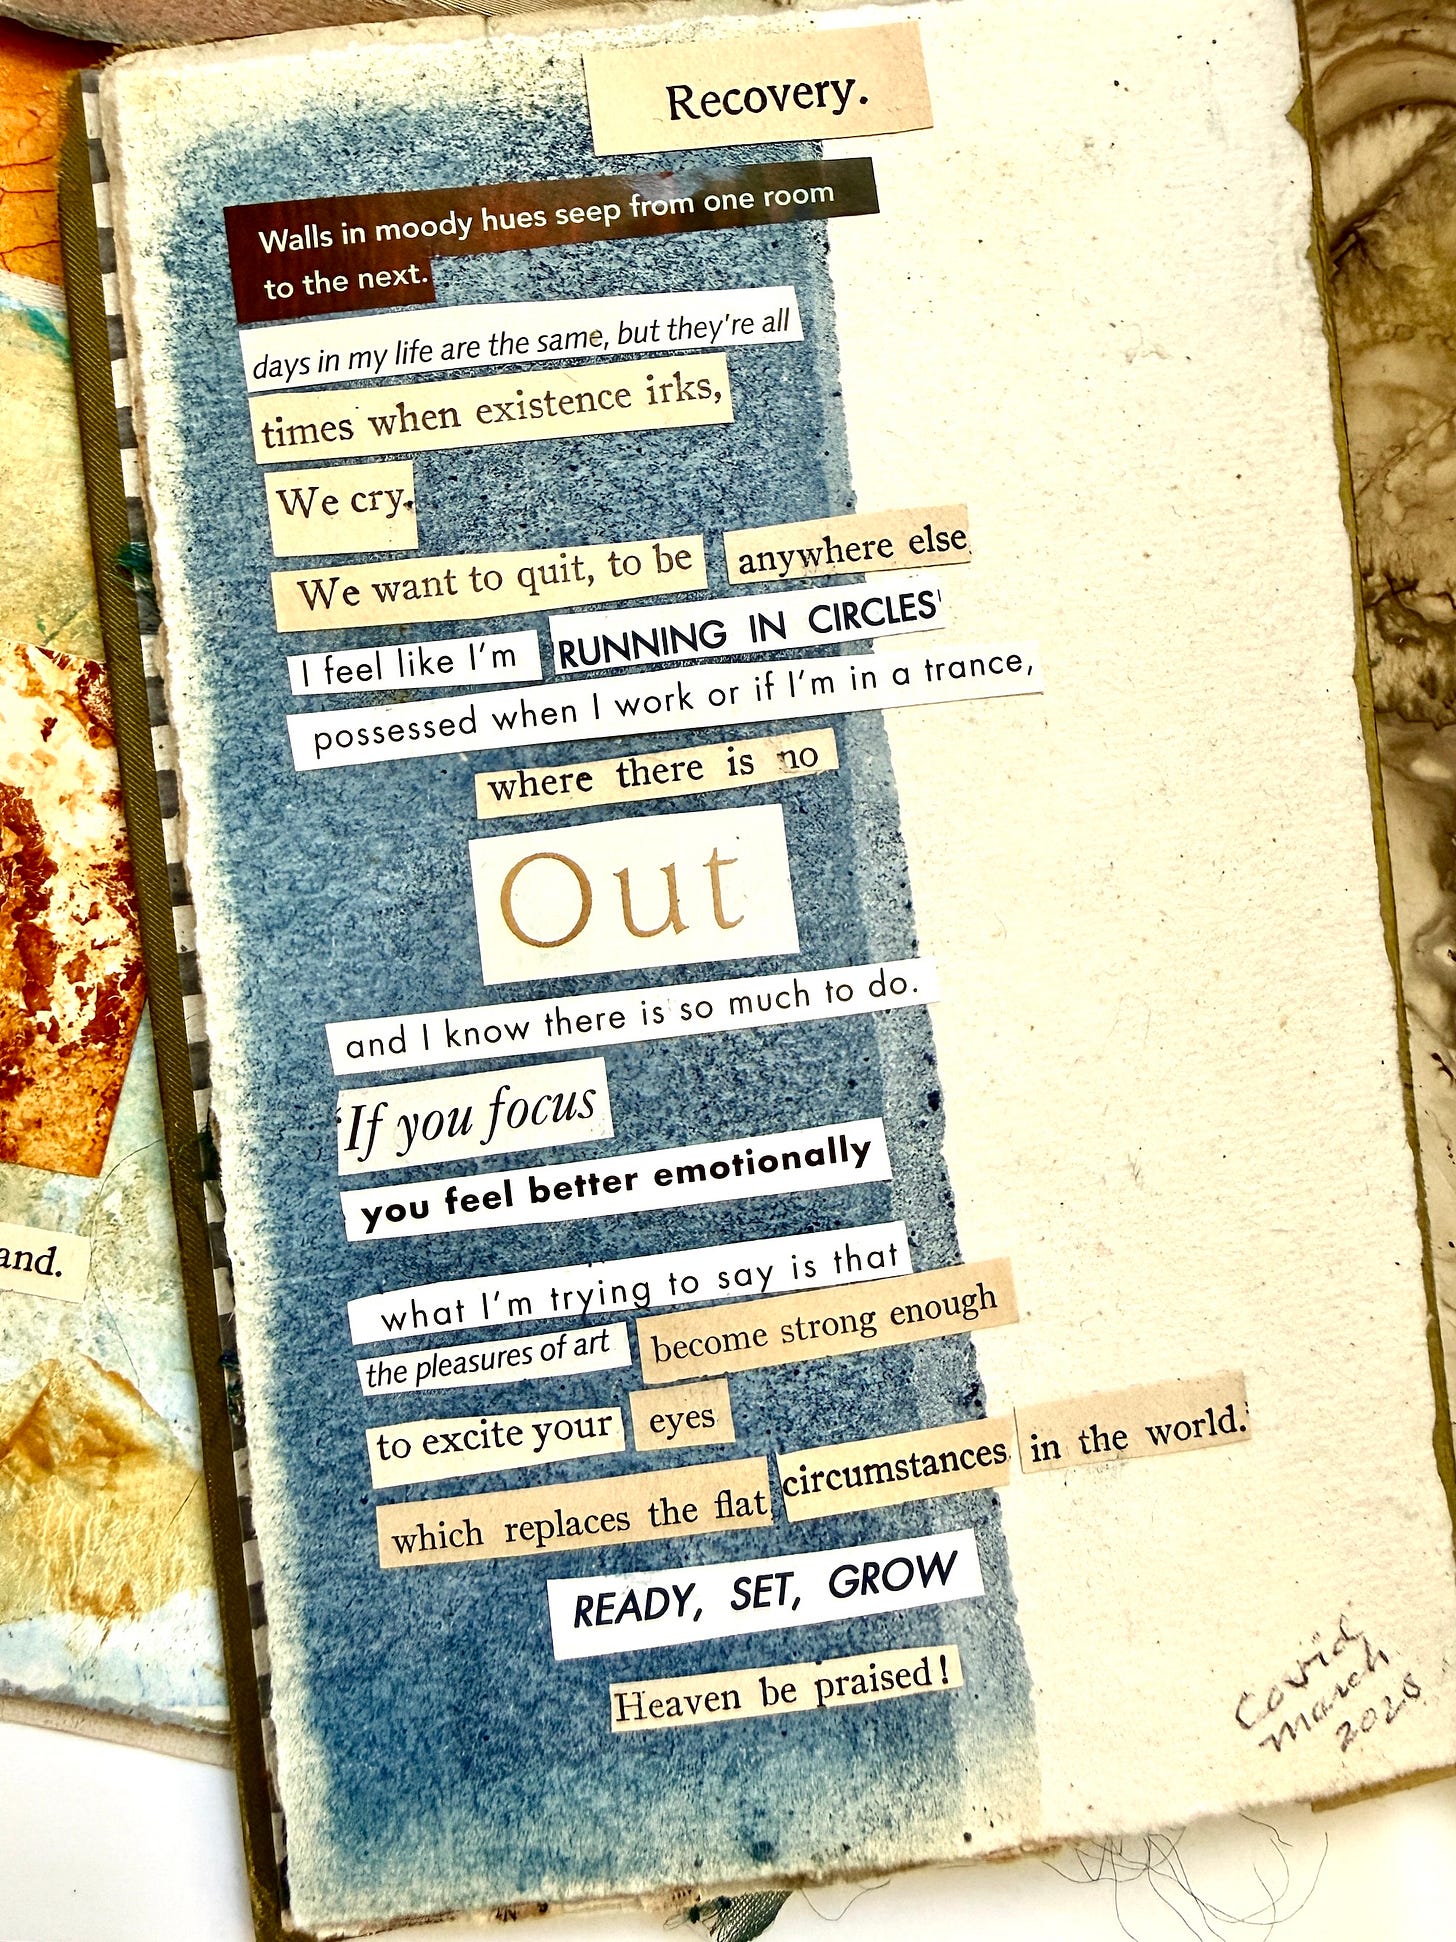 Recovery.
Walls in moody hues seep from one room
to the next.
days in my life are the same, but they're all
times when existence irks,
We cry.
We want to quit, to be anywhere else
I feel like I'm RUNNING IN CIRCLES'
possessed when I work or if I'm in a trance,
where there is no
Out
and I know there is so much to do.
'If you focus
you feel better emotionally
what I'm trying to say is that
the pleasures of art become strong enough
to excite your eyes
which replaces the flat circumstances in the world.
READY, SET, GROW
Heaven be praised!
Covid
March
and.